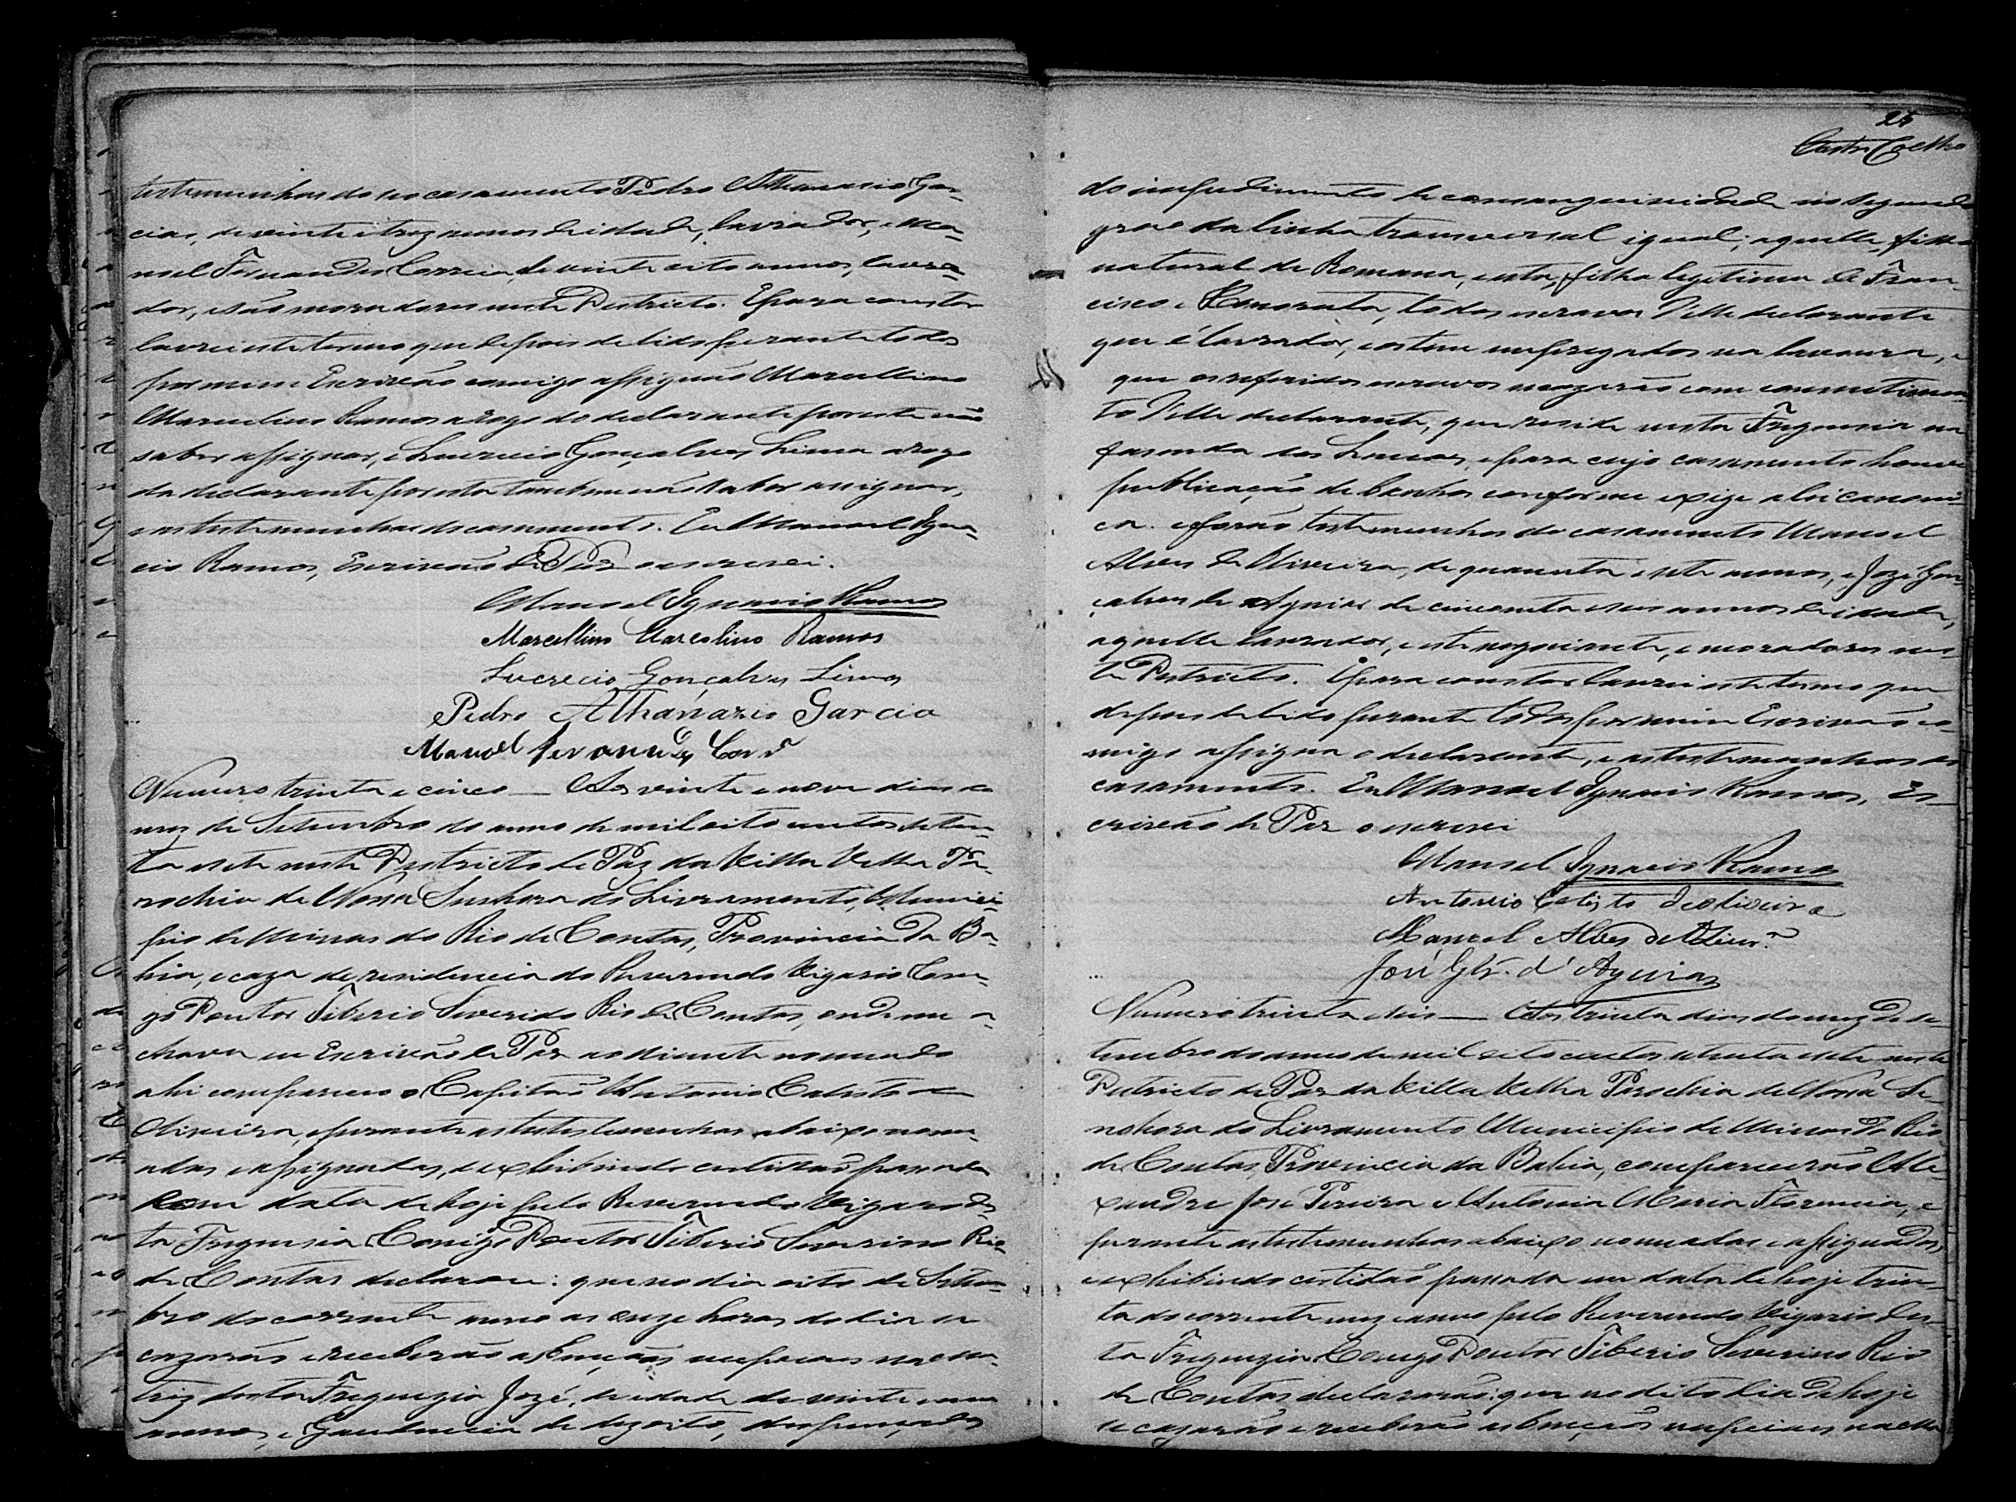 testemunhas do seo casamento Pedro Athanasio Gar-
cia, de vinte e trez annos de idade, lavrador, e Ma-
noel Fernandes Correia, de vinte oito annos, lavra-
dor, e são moradores neste Destricto. E para constar
lavrei este termo que depois de lido perante todos
por mim Escrivão comigo assignão Marcellino
Marcolino Ramos a rogo do declarante por este não
saber assignar, e Lucrecio Gonçalves Lima a rogo
da declarante por esta tambem não saber assignar,
e as testemunhas do casamento. Eu Manoel Igna-
cio Ramos, Escrivão de Paz o escrevi.
Manoel Ignacio Ramos
Marcellino Marcolino Ramos
Lucrecio Gonçalves Lima
Pedro Athanazio Garcia
Manoel Fernandes Corrª
Numero trinta e cinco — Aos vinte e nove dias do
mez de Setembro do anno de mil oito centos seten-
ta e sete neste Destricto de Paz da Villa Velha Pa-
rochia de Nossa Senhora do Livramento, Munici-
pio de Minas do Rio de Contas, Provincia da Ba-
hia, e caza de residencia do Reverendo Vigario Cone-
go Doutor Tiberio Severino Rio de Contas, onde me a-
chava eu Escrivão de Paz ao diante nomeado
ahi compareceo o Capitão Antonio Calisto de
Oliveira, e perante as testemunhas abaixo nome-
adas e assignadas, e exhibindo certidão passada
com data de hoje pelo Reverendo Vigario des-
ta Freguesia Conego Doutor Tiberio Severino Rio
de Contas declarou: que no dia oito de Setem-
bro do corrente anno as onze horas do dia se
cazarão e receberão as bençãos nupciaes na Ma-
triz desta Freguezia José, de idade de vinte e um
annos, e Gaudencia de dezoito, despensados
25
Castro Coelho
do impedimento de consanguinidade no segundo
grao da linha transversal igual; aquelle filho
natural de Romana, e esta, filha legitima de Fran-
cisco e Honorata, todos escravos d'elle declarante
que é lavrador, e estam empregados na lavoura, e
que os referidos escravos cazarão com consentimen-
to d'elle declarante, que reside nesta Freguesia na
fasenda das , e para cujo casamento houve
publicação de banhos conforme exige a lei canoni-
ca. e forão testemunhas do casamento Manoel
Alves de Oliveira, de quarenta e sete annos, e José Gon-
çalves de Aguiar de cincoenta e seis annos de idade,
aquelle lavrador, e este negociante, e moradores nes-
te Destricto. E para constar lavrei este termo que
depois de lido perante todos por mim Escrivão co-
migo assigna o declarante, e as testemunhas do
casamento. Eu Manoel Ignacio Ramos, Es-
crivão de Paz o escrevi
Manoel Ignacio Ramos
Antonio Calisto de Oliveira
Manoel Alves de Olivrª
José Glz. d'Aguiar
Numero trinta e seis — Aos trinta dias do mez de se-
tembro do anno de mil oito centos setenta e sete neste
Destricto de Paz da Villa Velha Parochia de Nossa Se-
nhora do Livramento Municipio de Minas do Rio
de Contas, Provincia da Bahia, comparecerão Ale-
xandre José Pereira e Antonia Maria Florencia, e
perante as testemunhas abaixo nomeadas e assignadas,
e exhibindo certidão passada em data de hoje trin-
ta do corrente mez e anno pelo Reverendo Vigario des-
ta Freguezia Conego Doutor Tiberio Severino Rio
de Contas declararão: que no dito dia de hoje
se cazarão e receberão as bençãos nupciaes na Ma-